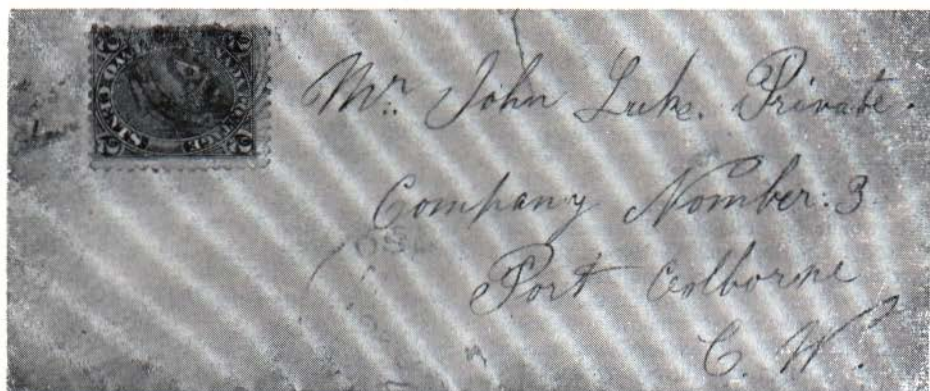 Mr. John Luke. Private.
Company Nomber: 3
Port Colborne
C. W.